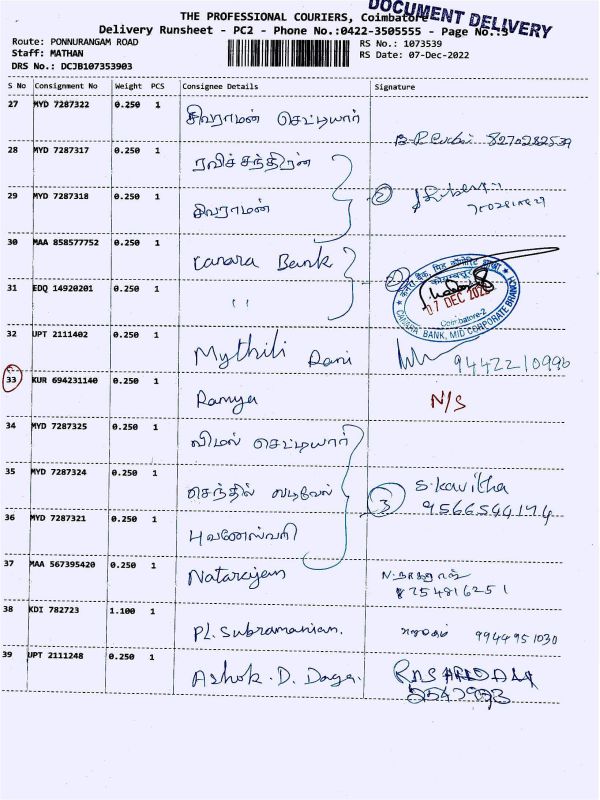 DOCUMENT DELIVERY
THE PROFESSIONAL COURIERS, Coimbatore
Delivery Runsheet - PC2 - Phone No.:0422-3505555 - Page No.:3
Route: PONNURANGAM ROAD RS No.: 1073539
Staff: MATHAN RS Date: 07-Dec-2022
DRS No.: DCJB107353903
S No Consignment No Weight PCS Consignee Details Signature
27 MYD 7287322 0.250 1 சிவராமன் செட்டியார்
8270282539
28 MYD 7287317 0.250 1 ரவிச்சந்திரன்
29 MYD 7287318 0.250 1 சிவராமன் 2
30 MAA 858577752 0.250 1 Canara Bank 2
31 EDQ 14920201 0.250 1 "
07 DEC 2022
Coimbatore-2
CANARA BANK, MID CORPORATE BRANCH
32 UPT 2111402 0.250 1 Mythili Rani 9442210996
33 KUR 694231140 0.250 1 Ramya N/S
34 MYD 7287325 0.250 1 விமல் செட்டியார்
35 MYD 7287324 0.250 1 செந்தில் வடிவேல் 3 S. Kavitha
9566544174
36 MYD 7287321 0.250 1 புவனேஸ்வரி
37 MAA 567395420 0.250 1 Natarajan
8754816251
38 KDI 782723 1.100 1 PL. Subramanian. 9944951030
39 UPT 2111248 0.250 1 Ashok. D. Daga.